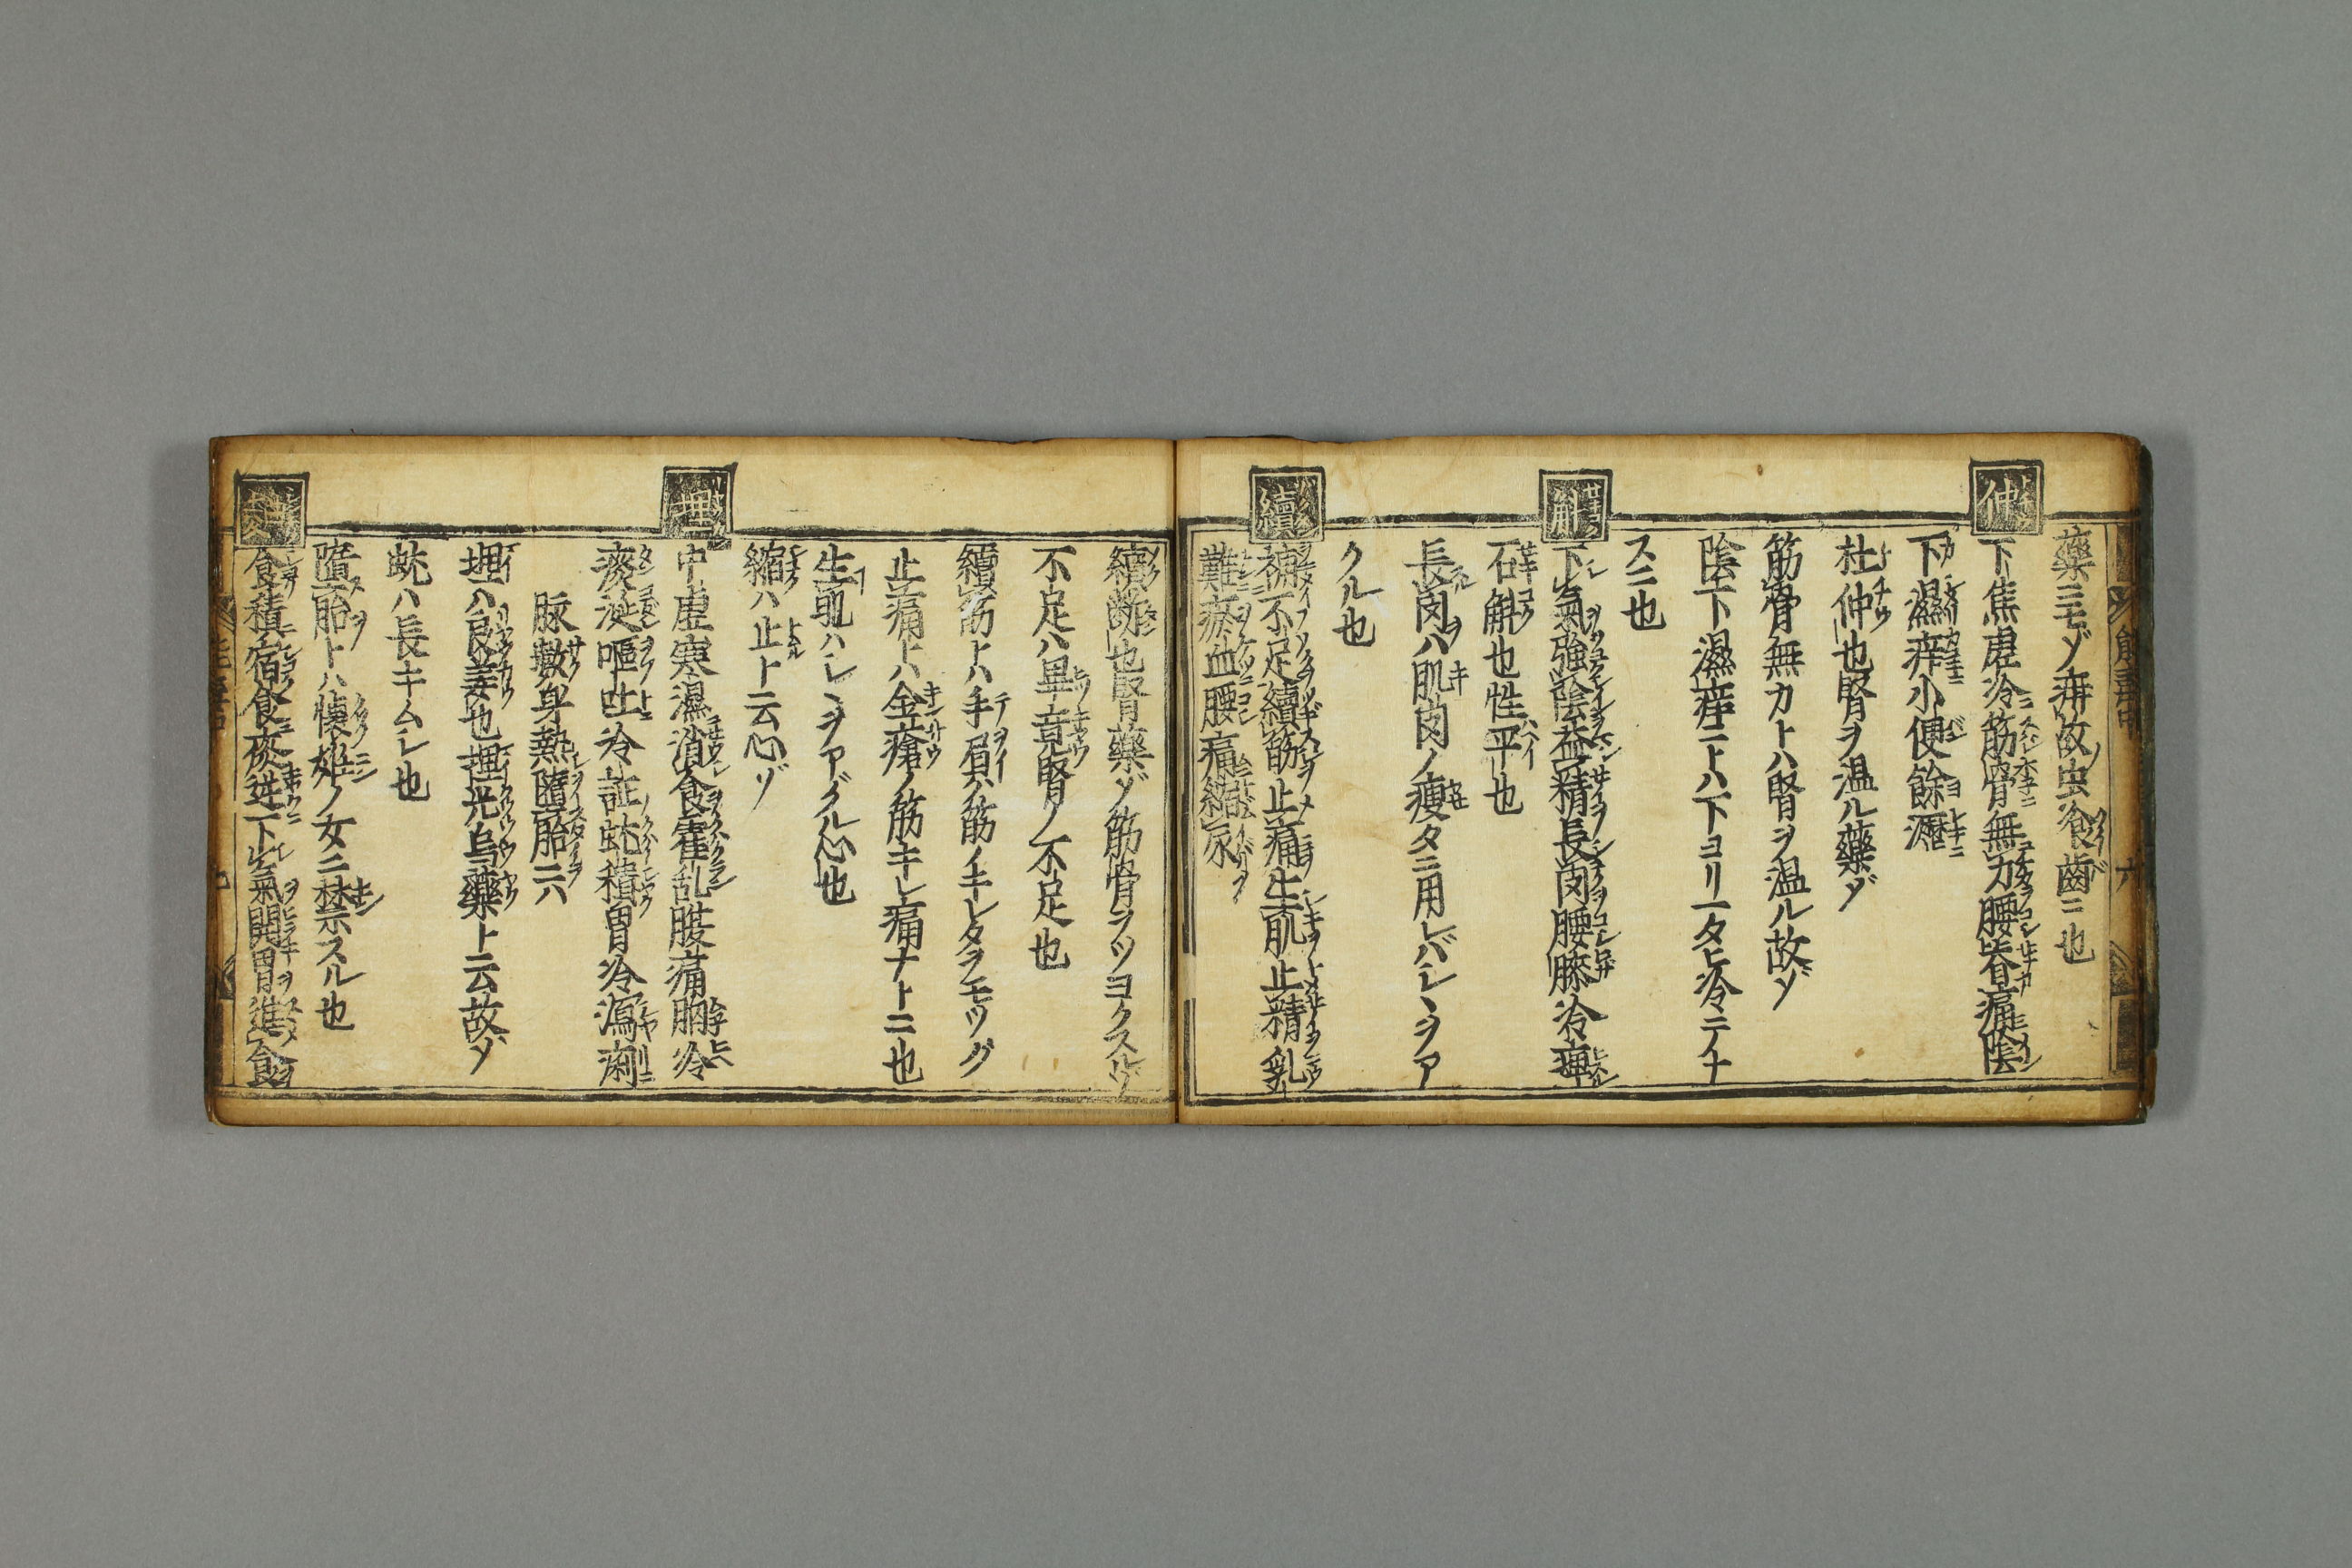 藥ニモゾ疳故虫冷齒ニ也
仲
下焦虚冷筋骨無力腰脊痛陰
下濕痒小便餘瀝
杜仲也腎ヲ温ル藥ゾ
筋骨無カトハ腎ヲ温ル故ゾ
陰下濕痒トハ下ヨリ一タヒ冷ニテナ
スニ也
斛
下氣強陰益精長肉腰膝冷痺
石斛也性平也
長肉ハ肌肉ノ痩タニ用レバシヽヲア
クル也
續
補不足續筋止痛生肌止精乳
難瘀血腰痛縮尿
續断也腎藥ゾ筋骨ヲツヨクスルゾ
不足ハ畢竟腎ノ不足也
續筋トハ手屓ノ筋ノキレタヲモツグ
止痛トハ金瘡ノ筋キレ痛ナトニ也
生肌ハシヽヲアグル心也
縮ハ止ト云心ゾ
埋
中虚寒濕消食霍乱腹痛胸冷
痰涎嘔吐冷証蚘積胃冷瀉痢
脉數身熱墮胎ニ六
埋ハ良姜也埋光烏藥ト云故ゾ
蚘ハ長キムシ也
墮胎トハ懐妊ノ女ニ禁スル也
食積宿食痰逆下氣開胃進食
六